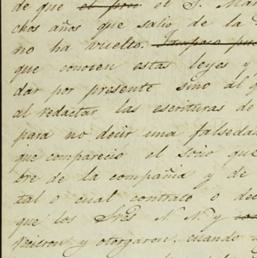 de que el pro el S. Mar
chos años que salio de la
no ha vuelto. Tampoco pue
que conocen estas leyes y
dar por presente sino al q
al redactar las escrituras de
para no decir una falsedad
que comparecio el socio que
bre de la compañia y de
tal o cual contrato o de
que los Sres N. N. y
hicieron y otorgaron, cuando